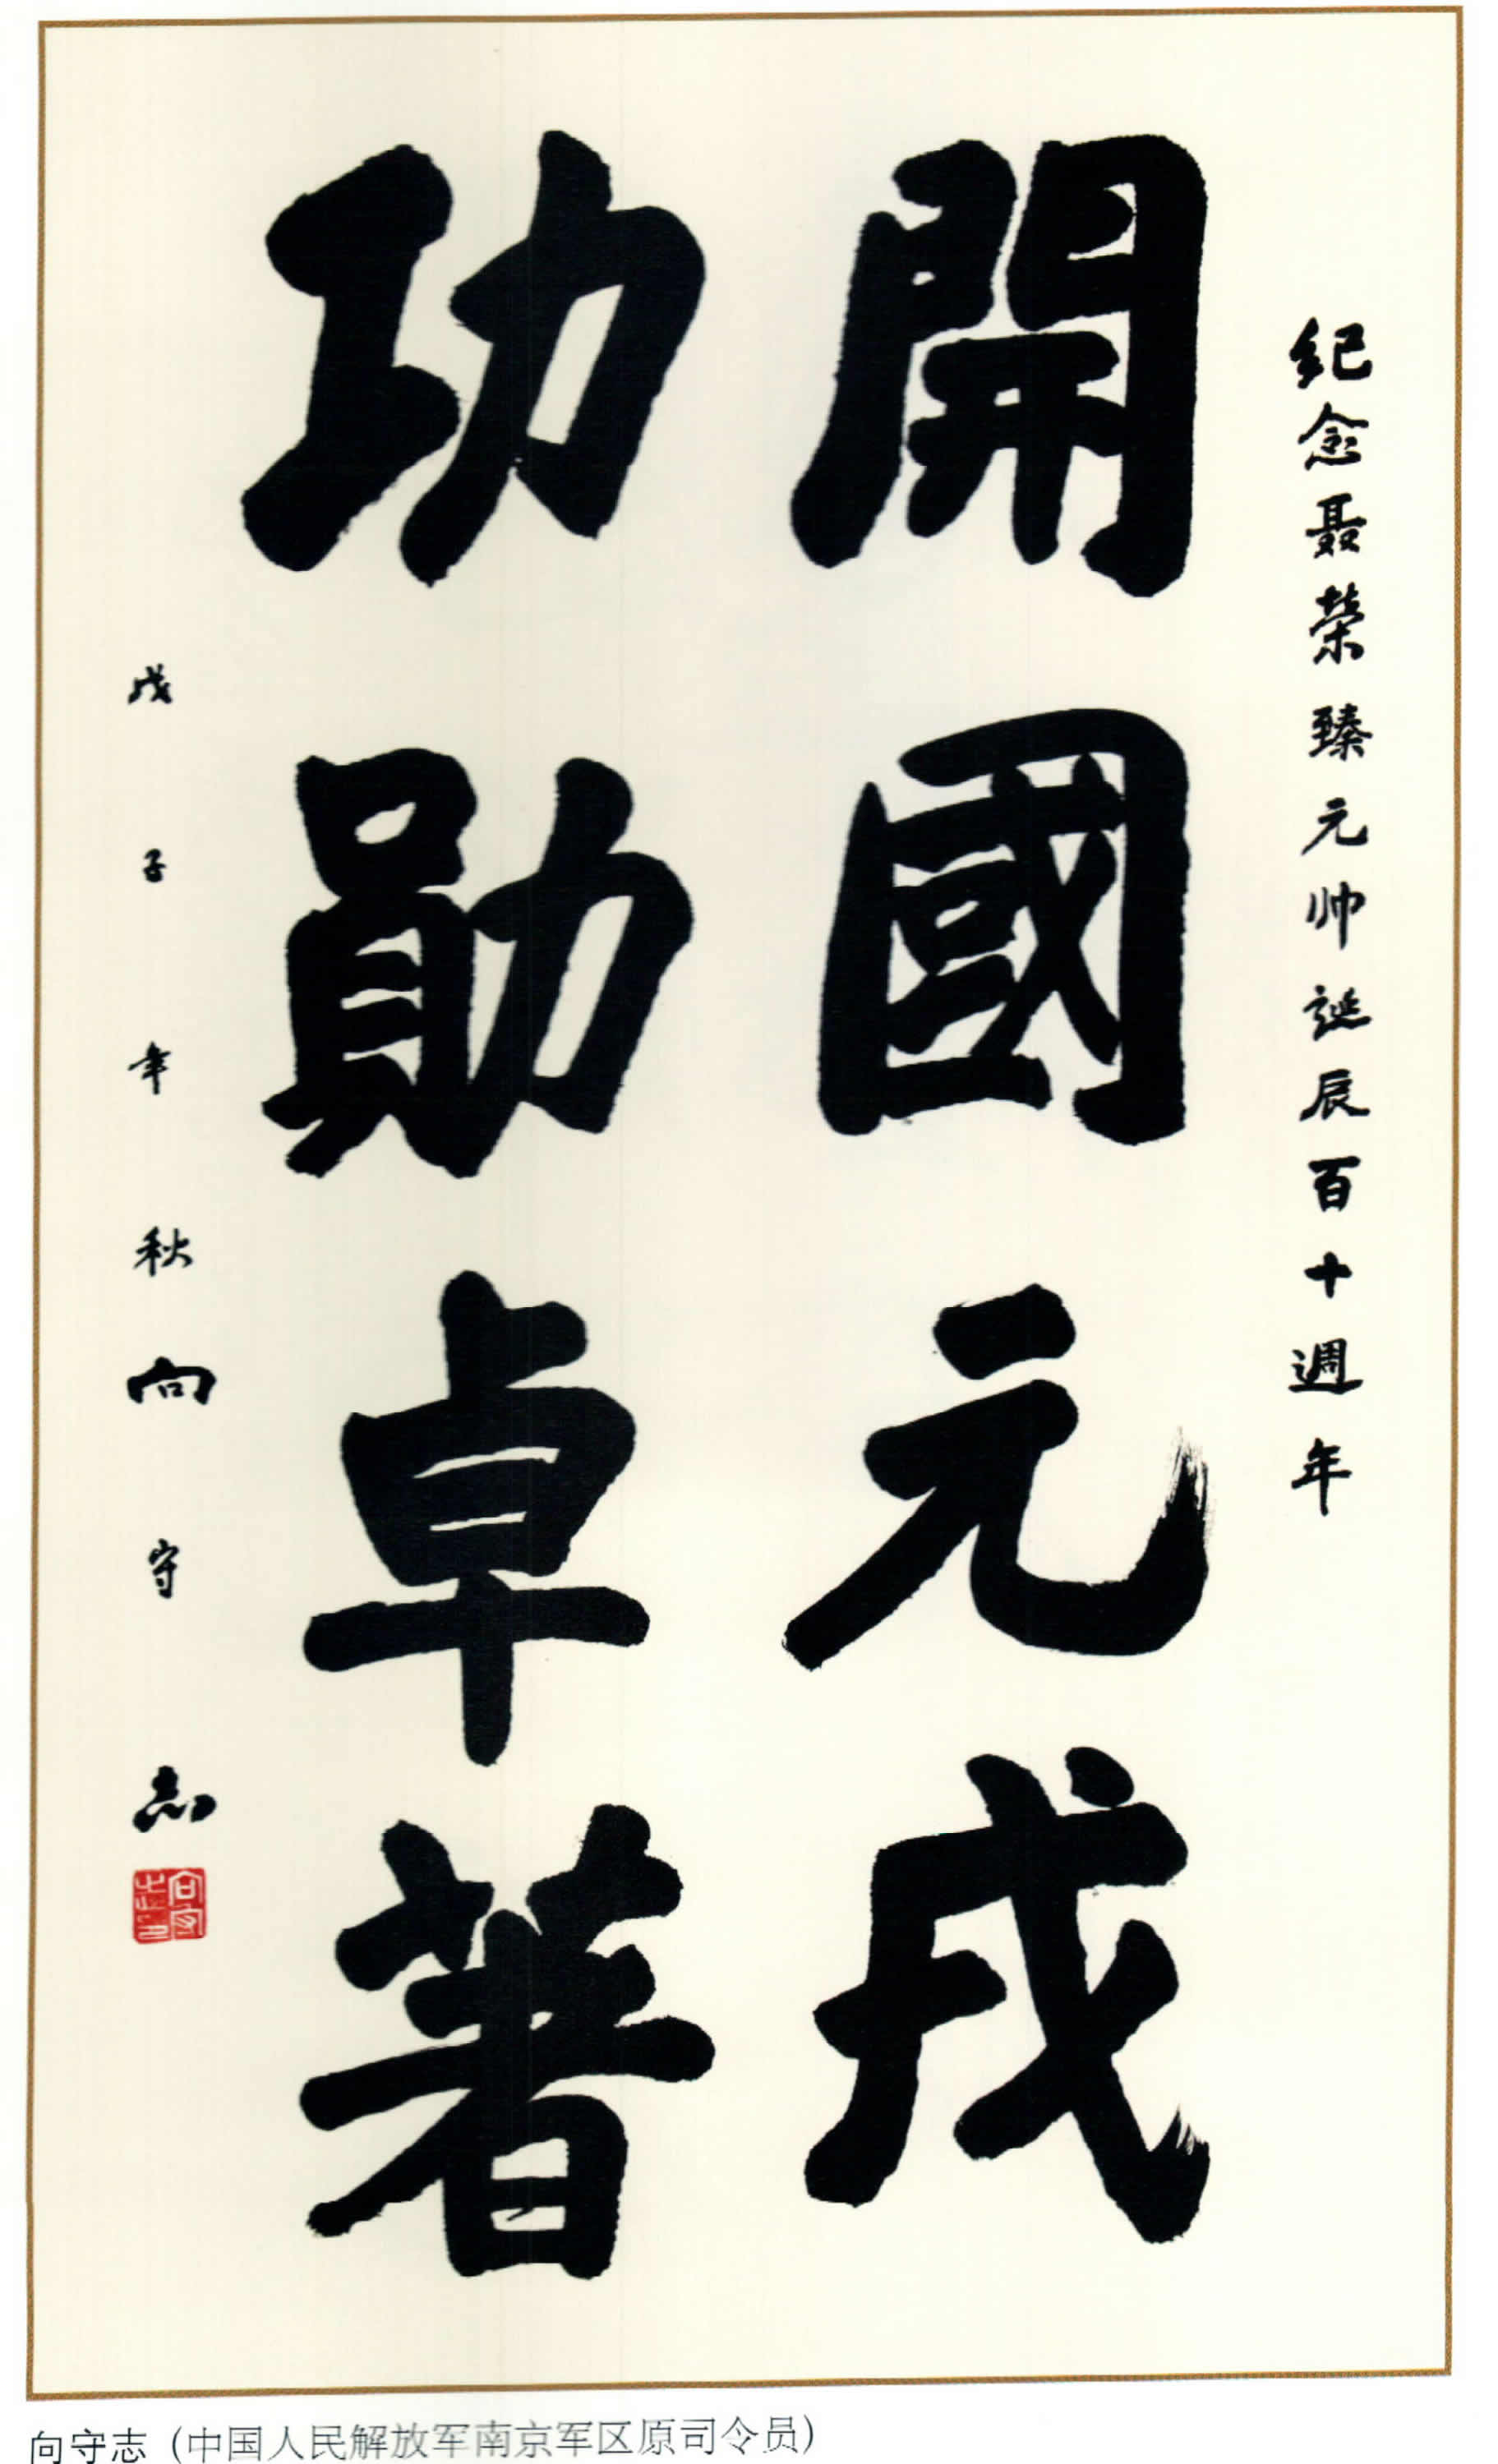 纪念聂荣臻元帅誕辰百十週年
開國元戎
功勛卓著
戊子年秋向守志
向守志之印
向守志（中国人民解放军南京军区原司令员）